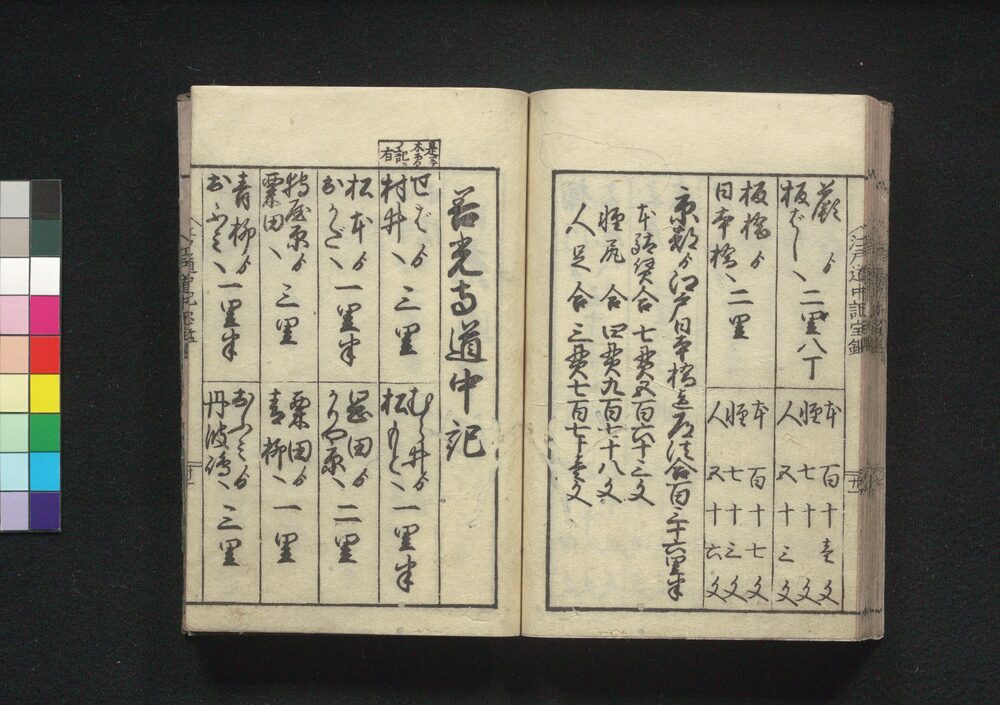 蕨ゟ
板ばしへ 二里八丁
本 百十壱文
軽 七十 文
人 五十三文
板橋ゟ
日本橋へ 二里
本 百十七文
軽 七十三文
人 五十六文
京都ゟ江戸日本橋迄道法合百三十六里半
本駄賃合 七貫五百六十三文
軽尻 合 四貫九百七十八文
人足 合 三貫七百七十壱文
江戸道中記宝鑑
善光寺道中記
せばゟ
村井へ 三里
むら井ゟ
松もとへ 一里半
松本ゟ
おかだへ 一里半
岡田ゟ
かりや原へ 二里
苅屋原ゟ
粟田へ 三里
粟田ゟ
青柳へ 一里
青柳ゟ
おふみへ 一里半
おふみゟ
丹波嶋へ 三里